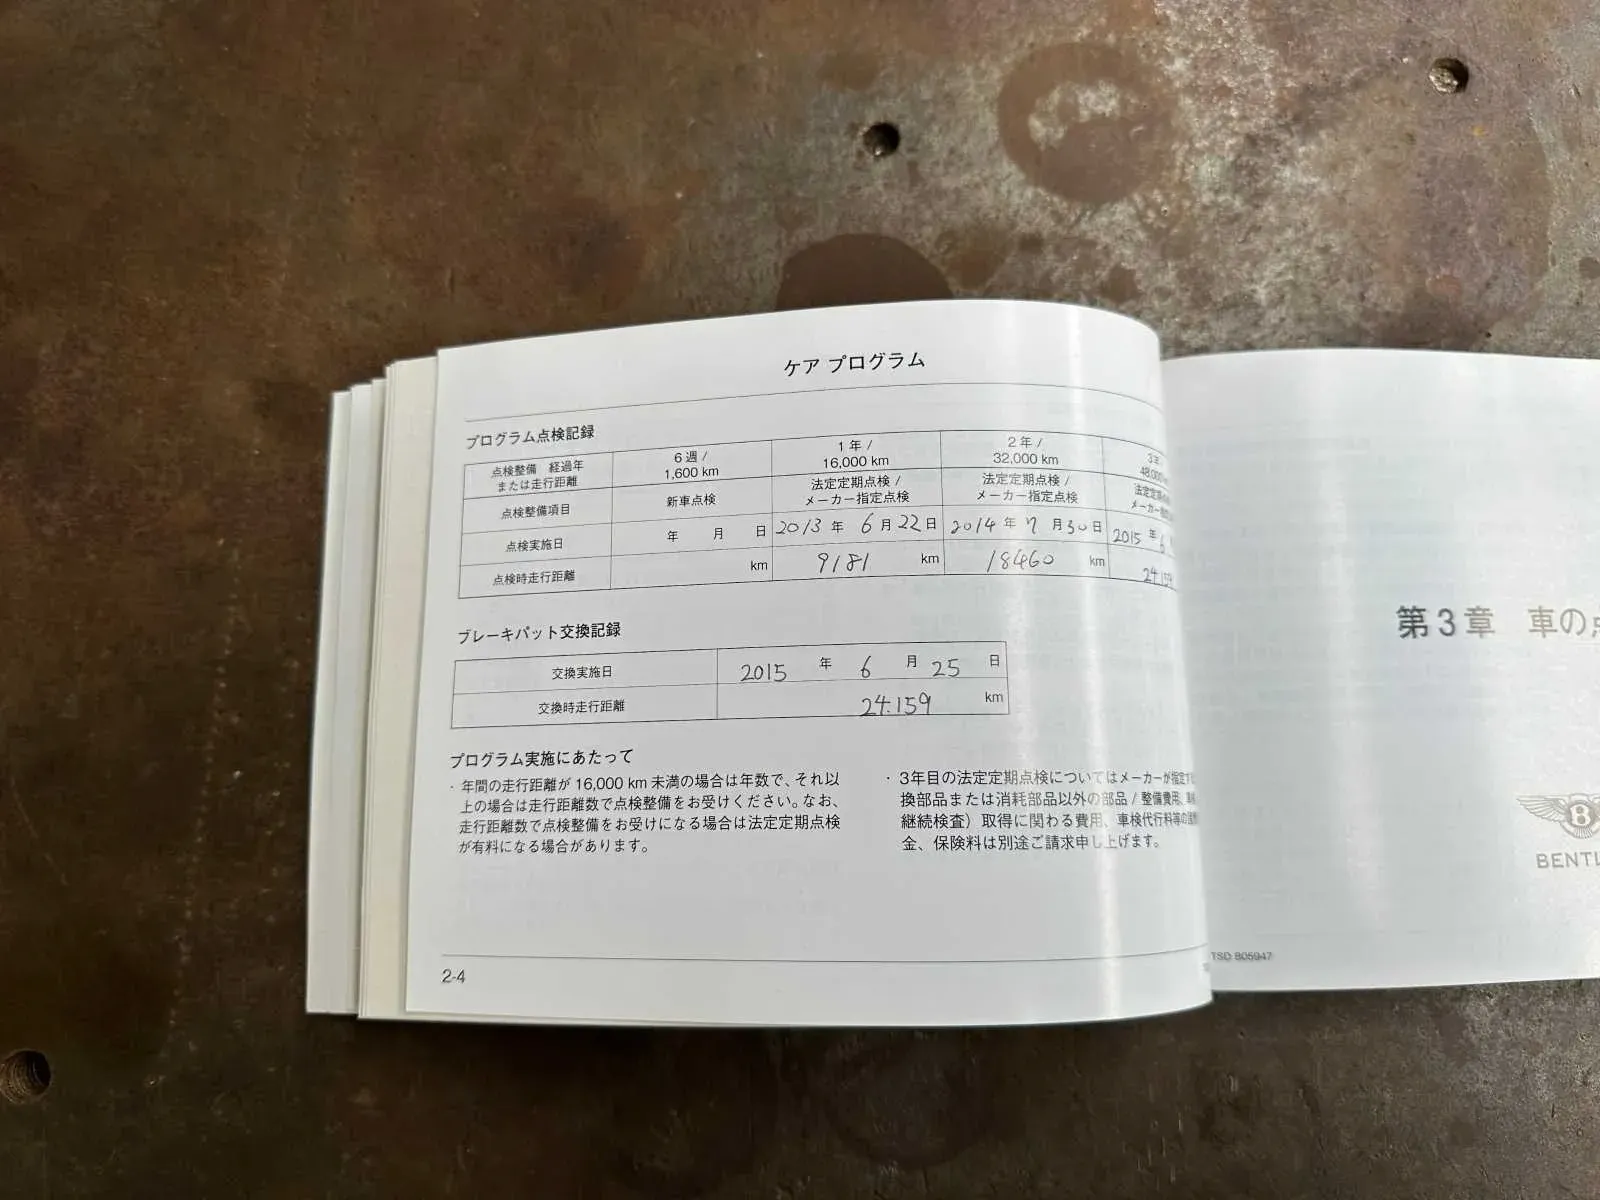 ケア プログラム
プログラム点検記録
点検整備 経過年
または走行距離
6 週 /
1,600 km
1 年 /
16,000 km
2 年 /
32,000 km
3年
48,000
点検整備項目
新車点検
法定定期点検 /
メーカー指定点検
法定定期点検 /
メーカー指定点検
法定定期
メーカー
点検実施日
年 月 日
2013 年 6 月 22 日
2014 年 7 月 30 日
2015 年 6
点検時走行距離
km
9181 km
18460 km
24.159
ブレーキパット交換記録
交換実施日 2015 年 6 月 25 日
交換時走行距離 24.159 km
プログラム実施にあたって
・ 年間の走行距離が 16,000 km 未満の場合は年数で、それ以
上の場合は走行距離数で点検整備をお受けください。なお、
走行距離数で点検整備をお受けになる場合は法定定期点検
が有料になる場合があります。
・ 3年目の法定定期点検についてはメーカーが指定する
換部品または消耗部品以外の部品 / 整備費用、
継続検査）取得に関わる費用、車検代行料等の
金、保険料は別途ご請求申し上げます。
2-4
第 3 章 車の点
B
BENTL
TSD 805947